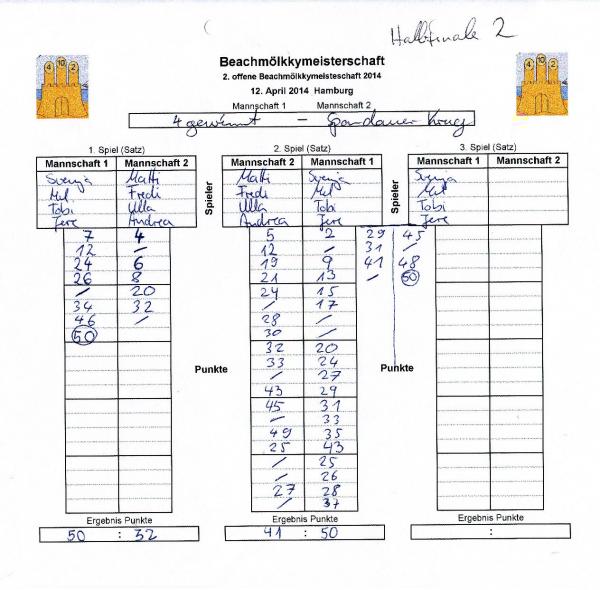 Halbfinale 2
4 10 2
4 10 2
Beachmölkkymeisterschaft
2. offene Beachmölkkymeisteschaft 2014
12. April 2014 Hamburg
Mannschaft 1 Mannschaft 2
4 gewinnt – Spandauer Krug
1. Spiel (Satz) 2. Spiel (Satz) 3. Spiel (Satz)
Mannschaft 1 Mannschaft 2 Spieler Mannschaft 2 Mannschaft 1 Spieler Mannschaft 1 Mannschaft 2
Svenja Matti Matti Svenja Svenja
Mel Fredi Fredi Mel Mel
Tobi Ulla Ulla Tobi Tobi
Jere Andrea Andrea Jere Jere
7 4 5 2 29 45
12 / 12 / 31
24 6 19 9 41 48
26 8 21 13 / 50
/ 20 24 15
34 32 / 17
46 / 28 /
50 30 /
32 20
Punkte 33 24 Punkte
/ 27
43 29
45 31
/ 33
49 35
25 43
/ 25
/ 26
27 28
/ 37
Ergebnis Punkte Ergebnis Punkte Ergebnis Punkte
50 : 32 41 : 50 :